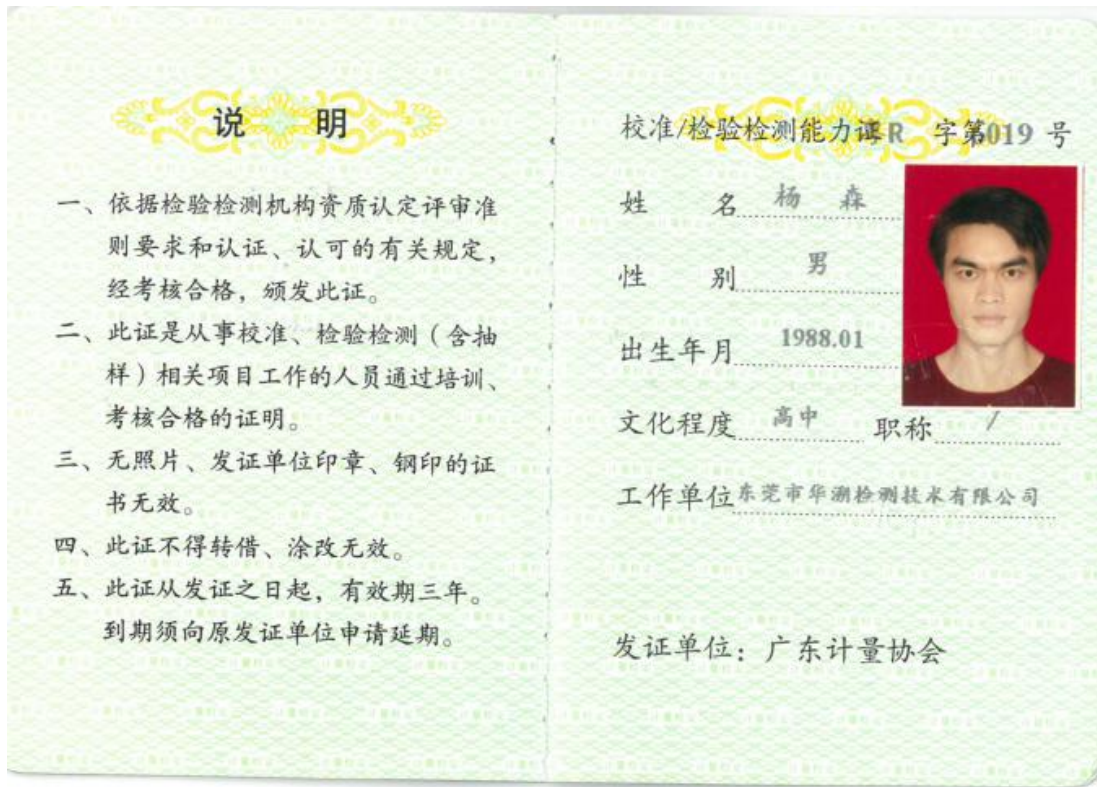 说 明
一、依据检验检测机构资质认定评审准
则要求和认证、认可的有关规定，
经考核合格，颁发此证。
二、此证是从事校准、检验检测（含抽
样）相关项目工作的人员通过培训、
考核合格的证明。
三、无照片、发证单位印章、钢印的证
书无效。
四、此证不得转借、涂改无效。
五、此证从发证之日起，有效期三年。
到期须向原发证单位申请延期。
校准/检验检测能力证R 字第019 号
姓 名 杨 森
性 别 男
出生年月 1988.01
文化程度 高中 职称 /
工作单位 东莞市华溯检测技术有限公司
发证单位：广东计量协会